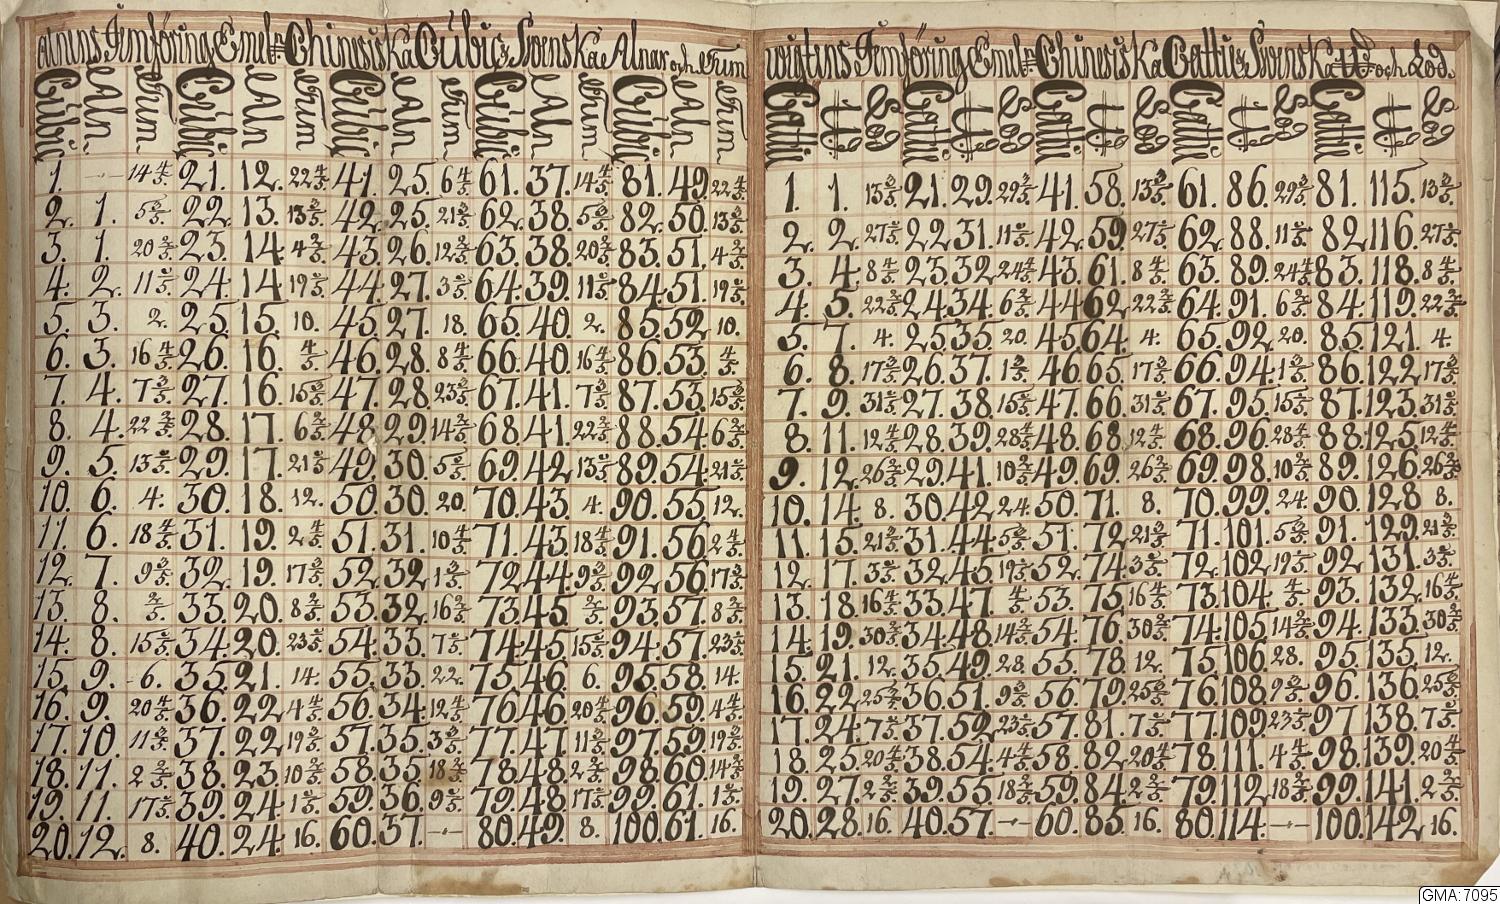 alnens Jemföring Emel= Chinesiska Cubic & Svenska Alnar och Tum
Cubic Aln. Tum. Cubic Aln Tum Cubic Aln Tum. Cubic Aln Tum. Cubic Aln Tum.
1. — 14 4/5. 21. 12. 22 4/5. 41. 25. 6 4/5. 61. 37. 14 4/5. 81. 49. 22 4/5.
2. 1. 5 3/5. 22. 13. 13 3/5. 42. 25. 21 3/5. 62. 38. 5 3/5. 82. 50. 13 3/5.
3. 1. 20 2/5. 23. 14 4 2/5. 43. 26. 12 2/5. 63. 38. 20 2/5. 83. 51. 4 2/5.
4. 2. 11 1/5. 24. 14 19 1/5. 44 27. 3 1/5. 64. 39. 11 1/5. 84. 51. 19 1/5.
5. 3. 2. 25. 15. 10. 45. 27. 18. 65. 40. 2. 85. 52 10.
6. 3. 16 4/5. 26. 16. 4/5. 46. 28. 8 4/5. 66. 40. 16 4/5. 86. 53. 4/5.
7. 4. 7 3/5. 27. 16 15 3/5. 47. 28. 23 3/5. 67. 41. 7 3/5. 87. 53. 15 3/5.
8. 4. 22 2/5. 28. 17. 6 2/5. 48. 29 14 2/5. 68. 41. 22 2/5. 88. 54. 6 2/5.
9. 5. 13 1/5. 29. 17. 21 1/5. 49. 30. 5 1/5. 69. 42. 13 1/5. 89. 54. 21 1/5.
10. 6. 4. 30. 18. 12. 50. 30. 20. 70. 43. 4. 90. 55. 12.
11. 6. 18 4/5. 31. 19. 2 4/5. 51. 31. 10 4/5. 71. 43. 18 4/5. 91. 56. 2 4/5.
12. 7. 9 3/5. 32. 19. 17 3/5. 52. 32 1 3/5. 72. 44. 9 3/5. 92. 56 17 3/5.
13. 8. 2/5. 33. 20. 8 2/5. 53. 32 16 2/5. 73. 45. 2/5. 93. 57. 8 2/5.
14. 8. 15 1/5. 34. 20. 23 1/5. 54. 33. 7 1/5. 74. 45. 15 1/5. 94. 57. 23 1/5.
15. 9. 6. 35. 21. 14. 55. 33. 22. 75. 46 6. 95. 58. 14.
16. 9. 20 4/5. 36. 22 4 4/5. 56. 34. 12 4/5. 76. 46. 20 4/5. 96. 59. 4 4/5.
17. 10. 11 3/5. 37. 22 19 3/5. 57. 35. 3 3/5. 77. 47. 11 3/5. 97. 59. 19 3/5.
18. 11. 2 2/5. 38. 23. 10 2/5. 58. 35 18 2/5. 78. 48. 2 2/5. 98. 60. 14 2/5.
19. 11. 17 1/5. 39. 24. 1 1/5. 59. 36. 9 1/5. 79. 48. 17 1/5. 99. 61. 1 1/5.
20. 12. 8. 40. 24. 16. 60. 37. — 80. 49. 8. 100. 61. 16.
wigtens Jemföring Emel= Chinesiska Cattie & Svenska ℔ och Lod.
Cattie ℔. Lod Cattie ℔. Lod Cattie ℔. Lod Cattie ℔. Lod Cattie ℔. Lod
1. 1. 13 3/5. 21. 29. 29 3/5. 41. 58. 13 3/5. 61. 86. 29 3/5. 81. 115. 13 3/5.
2. 2. 27 1/5. 22 31. 11 1/5. 42. 59 27 1/5. 62. 88. 11 1/5. 82 116. 27 1/5.
3. 4. 8 4/5. 23. 32 24 4/5. 43. 61. 8 4/5. 63. 89. 24 4/5. 83. 118. 8 4/5.
4. 5. 22 2/5. 24. 34. 6 2/5. 44 62. 22 2/5. 64. 91. 6 2/5. 84. 119. 22 2/5.
5. 7. 4. 25. 35. 20. 45. 64. 4. 65. 92 20. 85. 121. 4.
6. 8. 17 3/5. 26. 37. 1 3/5. 46. 65. 17 3/5. 66. 94. 1 3/5. 86. 122 17 3/5.
7. 9. 31 1/5. 27. 38. 15 1/5. 47. 66. 31 1/5. 67. 95. 15 1/5. 87. 123. 31 1/5.
8. 11. 12 4/5. 28. 39. 28 4/5. 48. 68. 12 4/5. 68. 96. 28 4/5. 88. 125. 12 4/5.
9. 12. 26 2/5. 29. 41. 10 2/5. 49. 69. 26 2/5. 69. 98. 10 2/5. 89. 126. 26 2/5.
10. 14. 8. 30. 42. 24. 50. 71. 8. 70. 99. 24. 90. 128 8.
11. 15. 21 3/5. 31. 44. 5 3/5. 51. 72. 21 3/5. 71. 101. 5 3/5. 91. 129. 21 3/5.
12. 17. 3 1/5. 32. 45. 19 1/5. 52. 74. 3 1/5. 72. 102. 19 1/5. 92 131. 3 1/5.
13. 18. 16 4/5. 33. 47. 4/5. 53. 75 16 4/5. 73. 104. 4/5. 93. 132. 16 4/5.
14. 19. 30 2/5. 34. 48. 14 2/5. 54. 76. 30 2/5. 74. 105 14 2/5. 94. 133. 30 2/5.
15. 21. 12. 35. 49. 28. 55. 78. 12. 75. 106. 28. 95. 135. 12.
16. 22. 25 3/5. 36. 51. 9 3/5. 56. 79. 25 3/5. 76. 108. 9 3/5. 96. 136. 25 3/5.
17. 24. 7 1/5. 37. 52. 23 1/5. 57. 81. 7 1/5. 77. 109. 23 1/5. 97. 138. 7 1/5.
18. 25. 20 4/5. 38. 54. 4 4/5. 58. 82. 20 4/5. 78. 111. 4 4/5. 98. 139. 20 4/5.
19. 27. 2 2/5. 39. 55. 18 2/5. 59. 84. 2 2/5. 79. 112. 18 2/5. 99. 141. 2 2/5.
20. 28. 16. 40. 57. — 60. 85. 16. 80. 114. — 100. 142 16.
GMA:7095